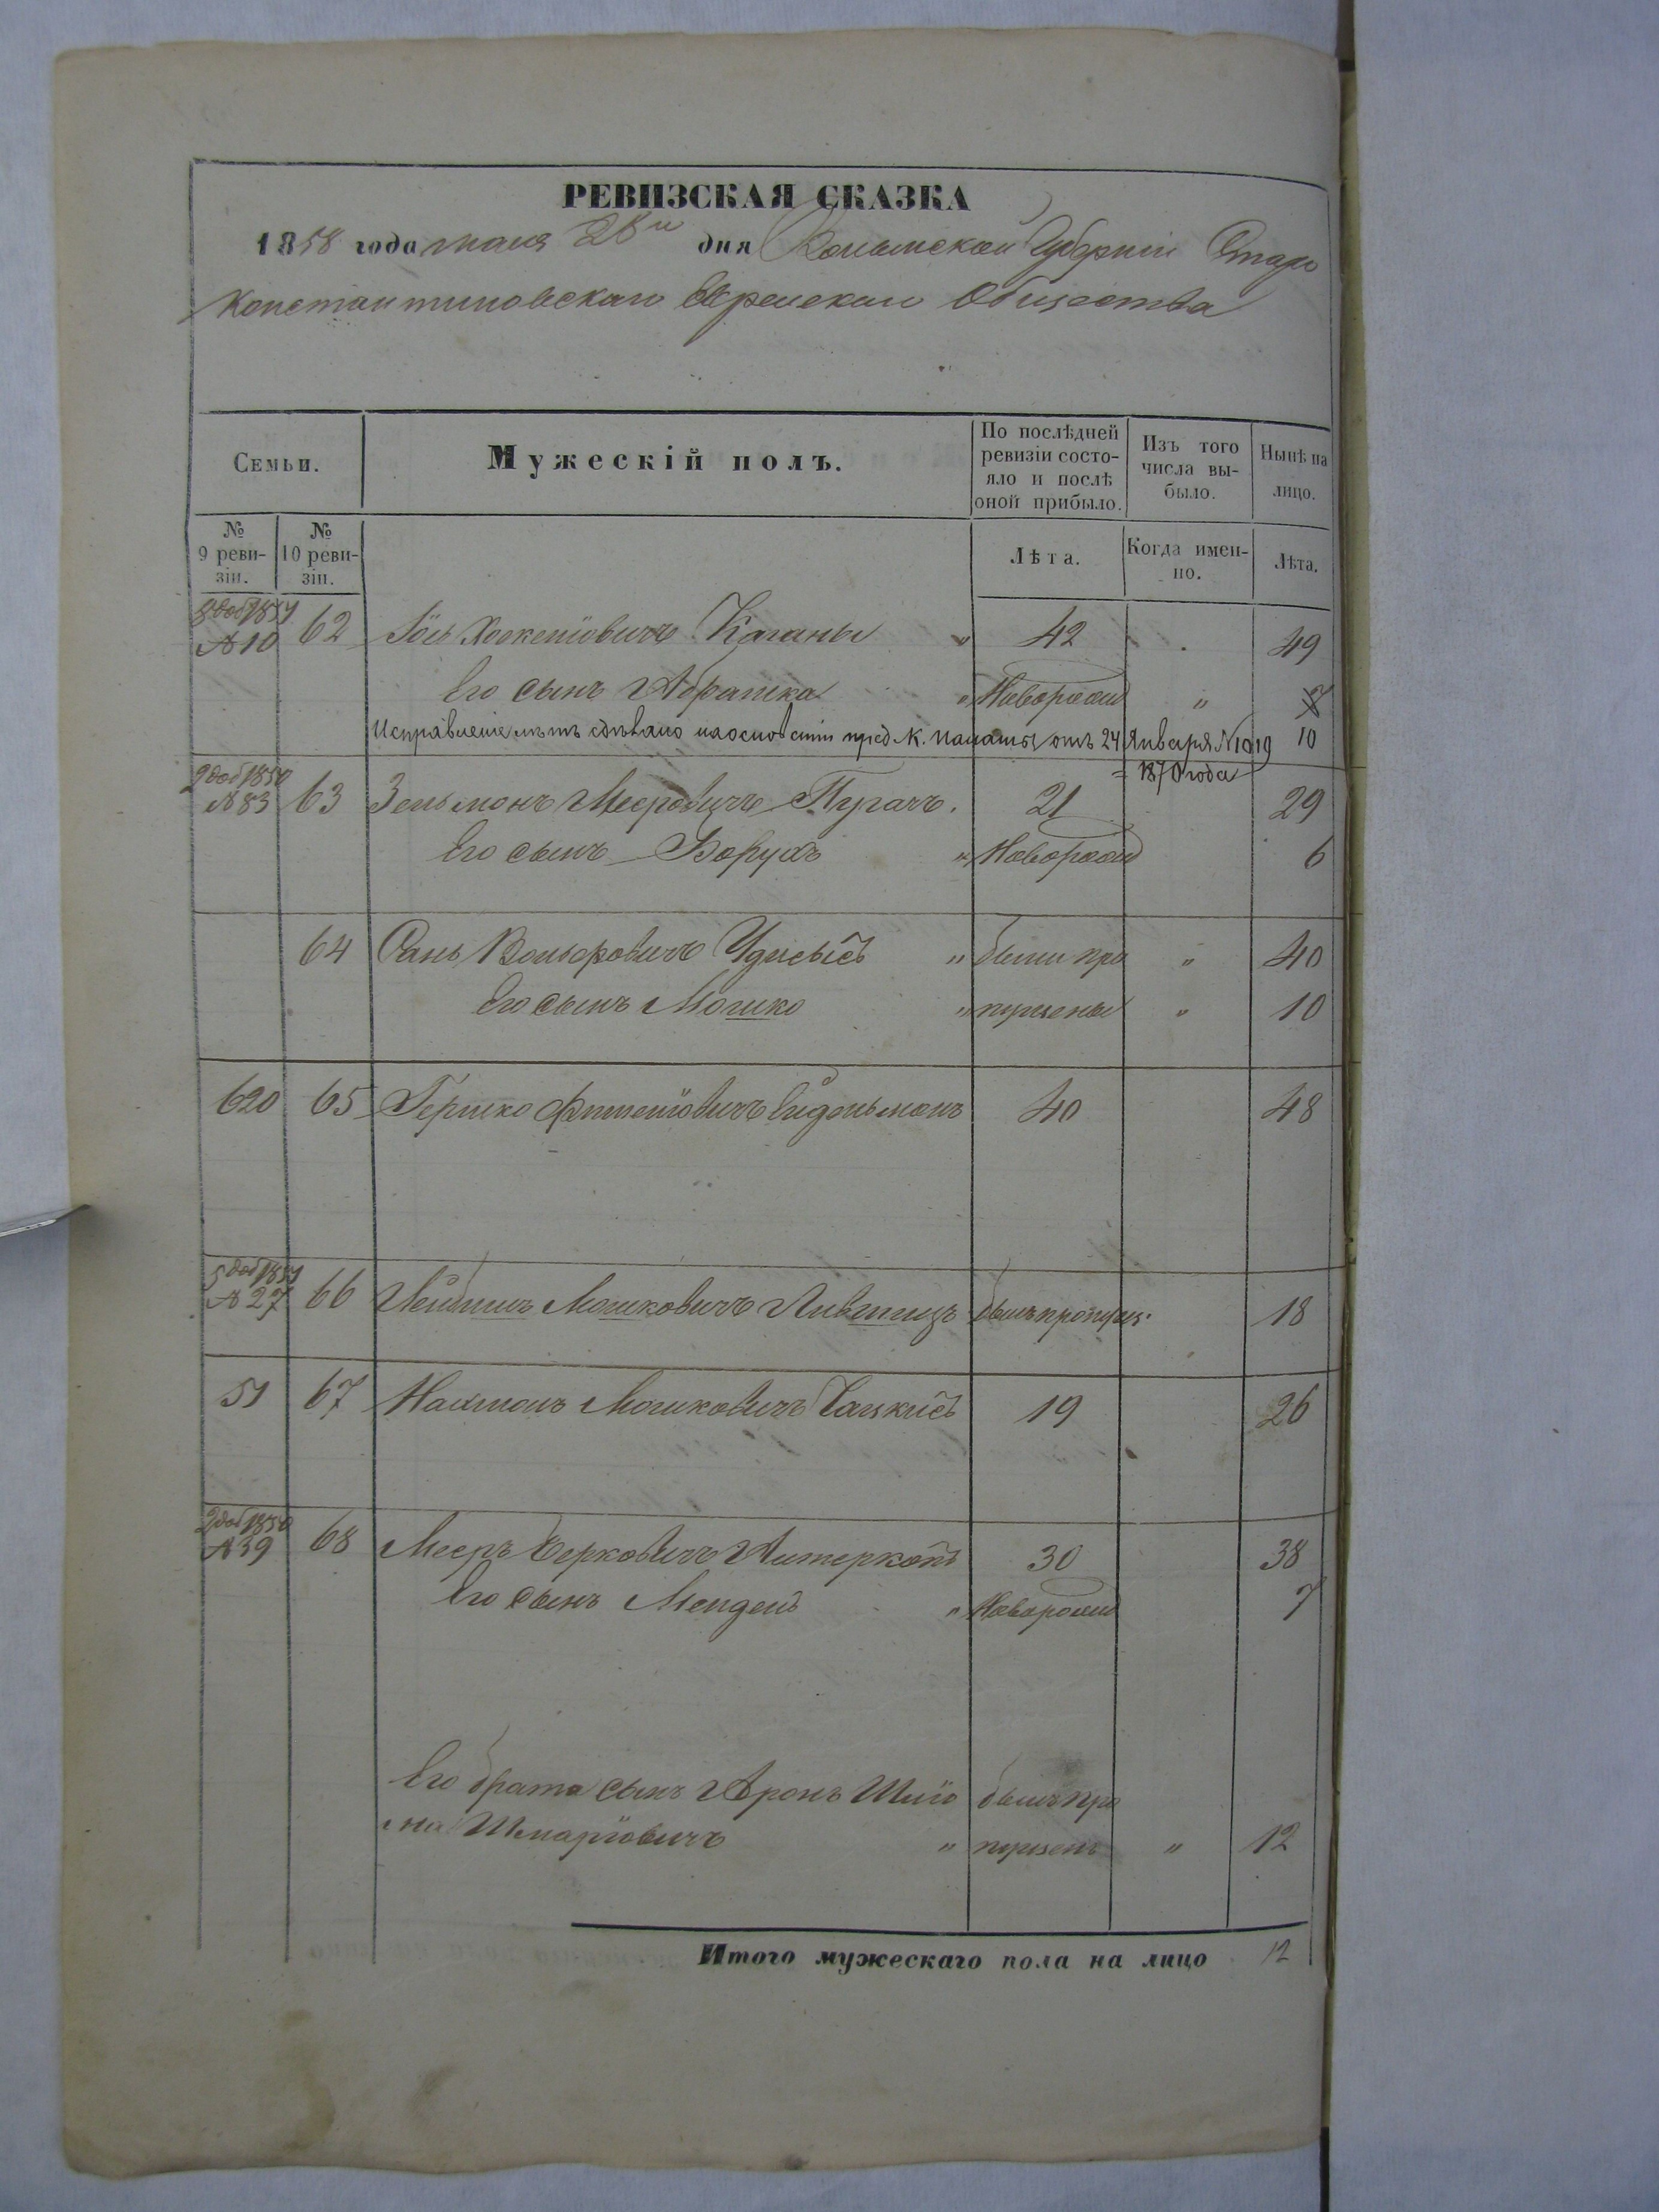 РЕВИЗСКАЯ СКАЗКА
1858 года мая 28 дня Волынской Губерніи Старо
Константиновскаго Еврейскаго Общества
Семьи.
Мужескій полъ.
По послѣдней ревизіи состо-
яло и послѣ
оной прибыло.
Изъ того
числа вы-
было.
Нынѣ на
лицо.
№
9 реви-
зіи.
№
10 реви-
зіи.
Лѣта.
Когда имен-
но.
Лѣта.
№ 10 62 Каганъ 42 49
Его сынъ Абрамка " Новорожд " 7
Исправленіе лѣтъ сдѣлано на основаніи пред. К. Палаты отъ 24 Января № 1019 10
1870 года
2 доб 1850
№ 83 63 Зельманъ Мееровичъ Пугачъ. 21 29
Его сынъ Борухъ " Новорожд 6
64 Вольфовичъ " были про " 40
Его сынъ Мошко " пущены " 10
620 65 Гершко 40 48
5 доб 1851
№ 27 66 Мошковичъ Лившицъ былъ пропущ. 18
51 67 Нахманъ Мошковичъ 19 26
2 доб 1850
№ 39 68 Мееръ Берковичъ 30 38
Его сынъ Мендель " Новорожд 7
Его брата сынъ Аронъ Шлiо былъ про
ма " пущенъ " 12
Итого мужескаго пола на лицо 12